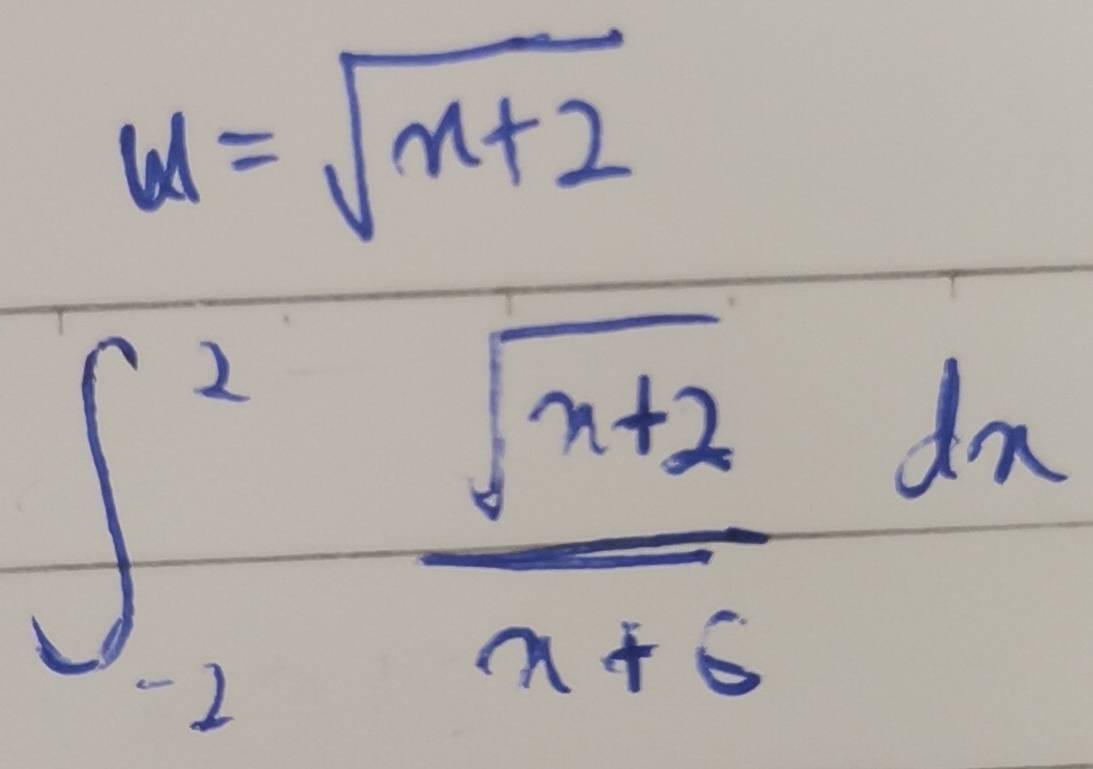 u = √(x+2)
∫_{-2}^{2} √(x+2) / (x+6) dx